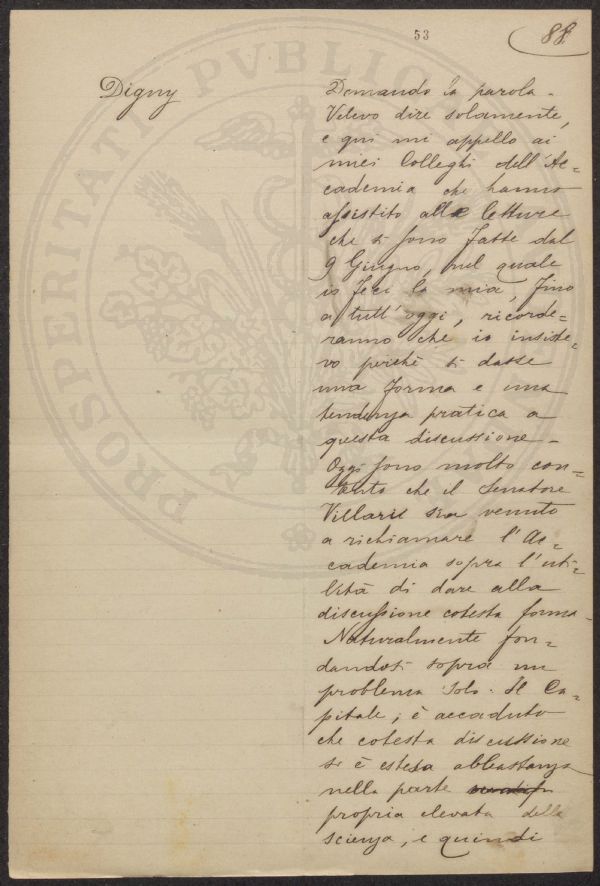 53
88.
PROSPERITATI PVBLICAE
Digny
Domando la parola -
Volevo dire solamente,
e qui mi appello ai
miei Colleghi dell'Ac=
cademia che hanno
assistito alle letture
che si sono fatte dal
9 Giugno, nel quale
io feci la mia, fino
a tutt'oggi, ricorde=
ranno che io insiste=
vo perchè si dasse
una forma e una
tendenza pratica a
questa discussione -
Oggi sono molto con=
tento che il Senatore
Villari sia venuto
a richiamare l'Ac=
cademia sopra l'uti=
lità di dare alla
discussione cotesta forma -
Naturalmente fon=
dandosi sopra un
problema solo: Il Ca=
pitale, è accaduto
che cotesta discussione
si è estesa abbastanza
nella parte
propria elevata della
scienza, e quindi